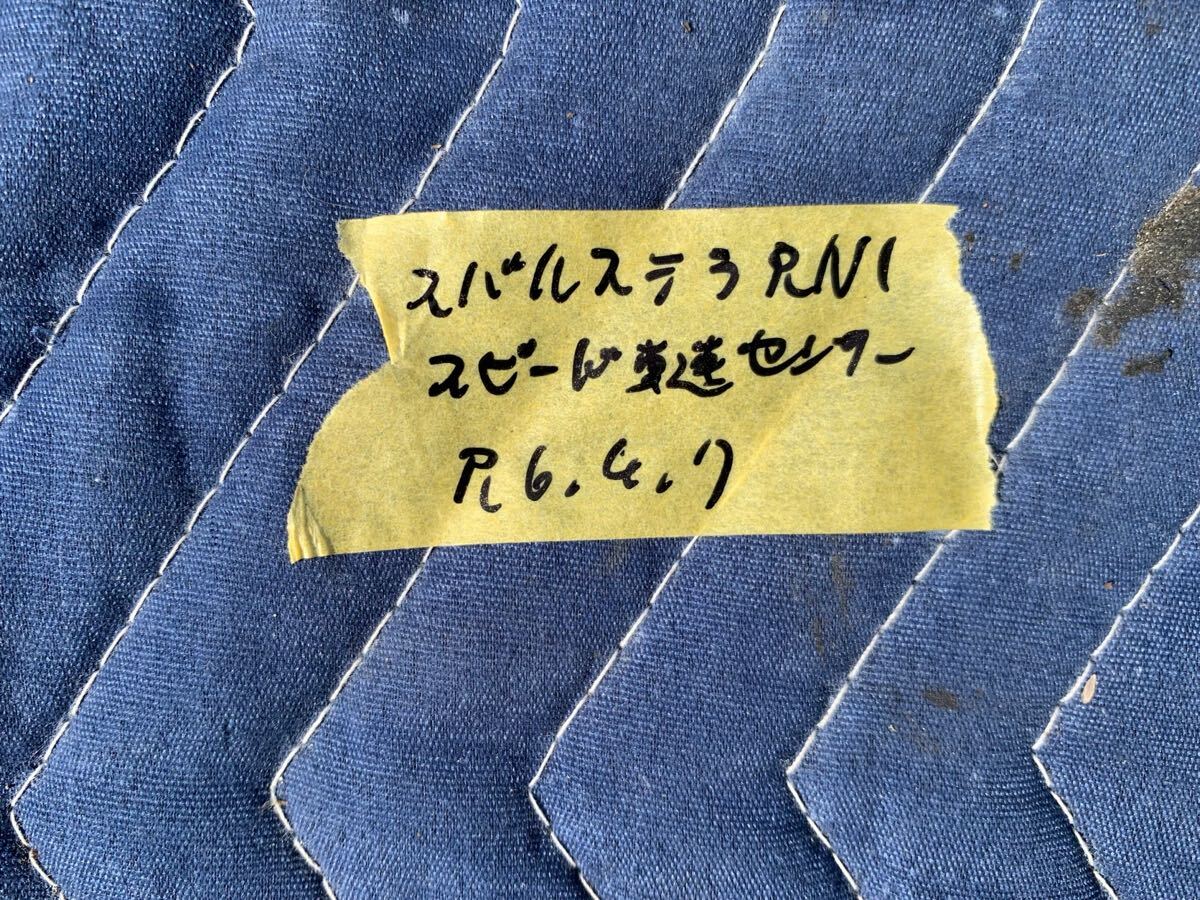 スバルステラRN1
スピード車速センサー
R6.4.7